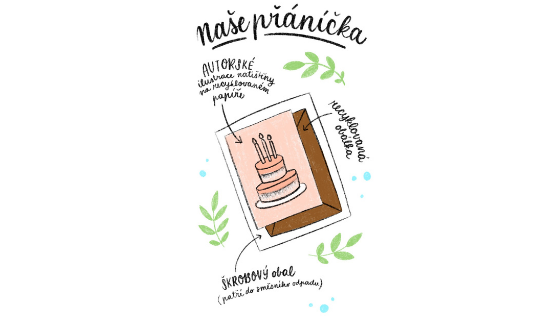 naše přáníčka
AUTORSKÉ
ilustrace natištěny
na recyklovaném
papíře
recyklovaná
obálka
ŠKROBOVÝ obal
(patří do směsného odpadu)